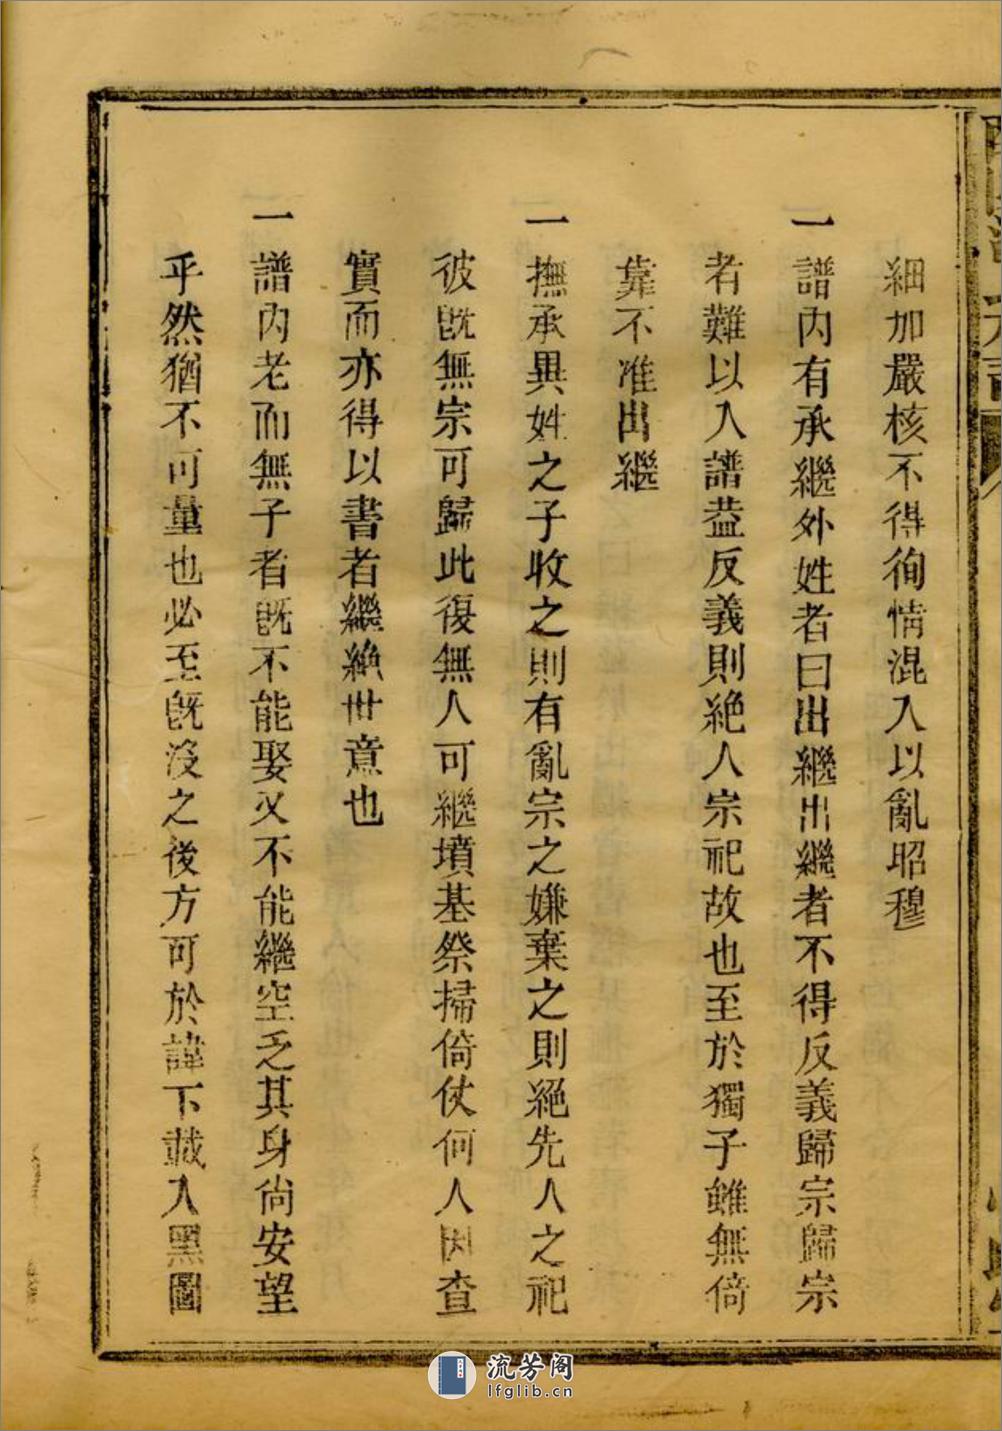 細加嚴核不得徇情混入以亂昭穆
一譜内有承繼外姓者曰出繼出繼者不得反義歸宗歸宗
者難以入譜葢反義則絶人宗祀故也至於獨子雖無倚
靠不准出繼
一撫承異姓之子收之則有亂宗之嫌棄之則絕先人之祀
彼旣無宗可歸此復無人可繼墳基祭掃倚仗何人因查
實而亦得以書者繼絶世意也
一譜内老而無子者旣不能娶又不能繼空乏其身尙安望
乎然猶不可量也必至旣没之後方可於諱下載入黑圖
流芳阁
lfglib.cn